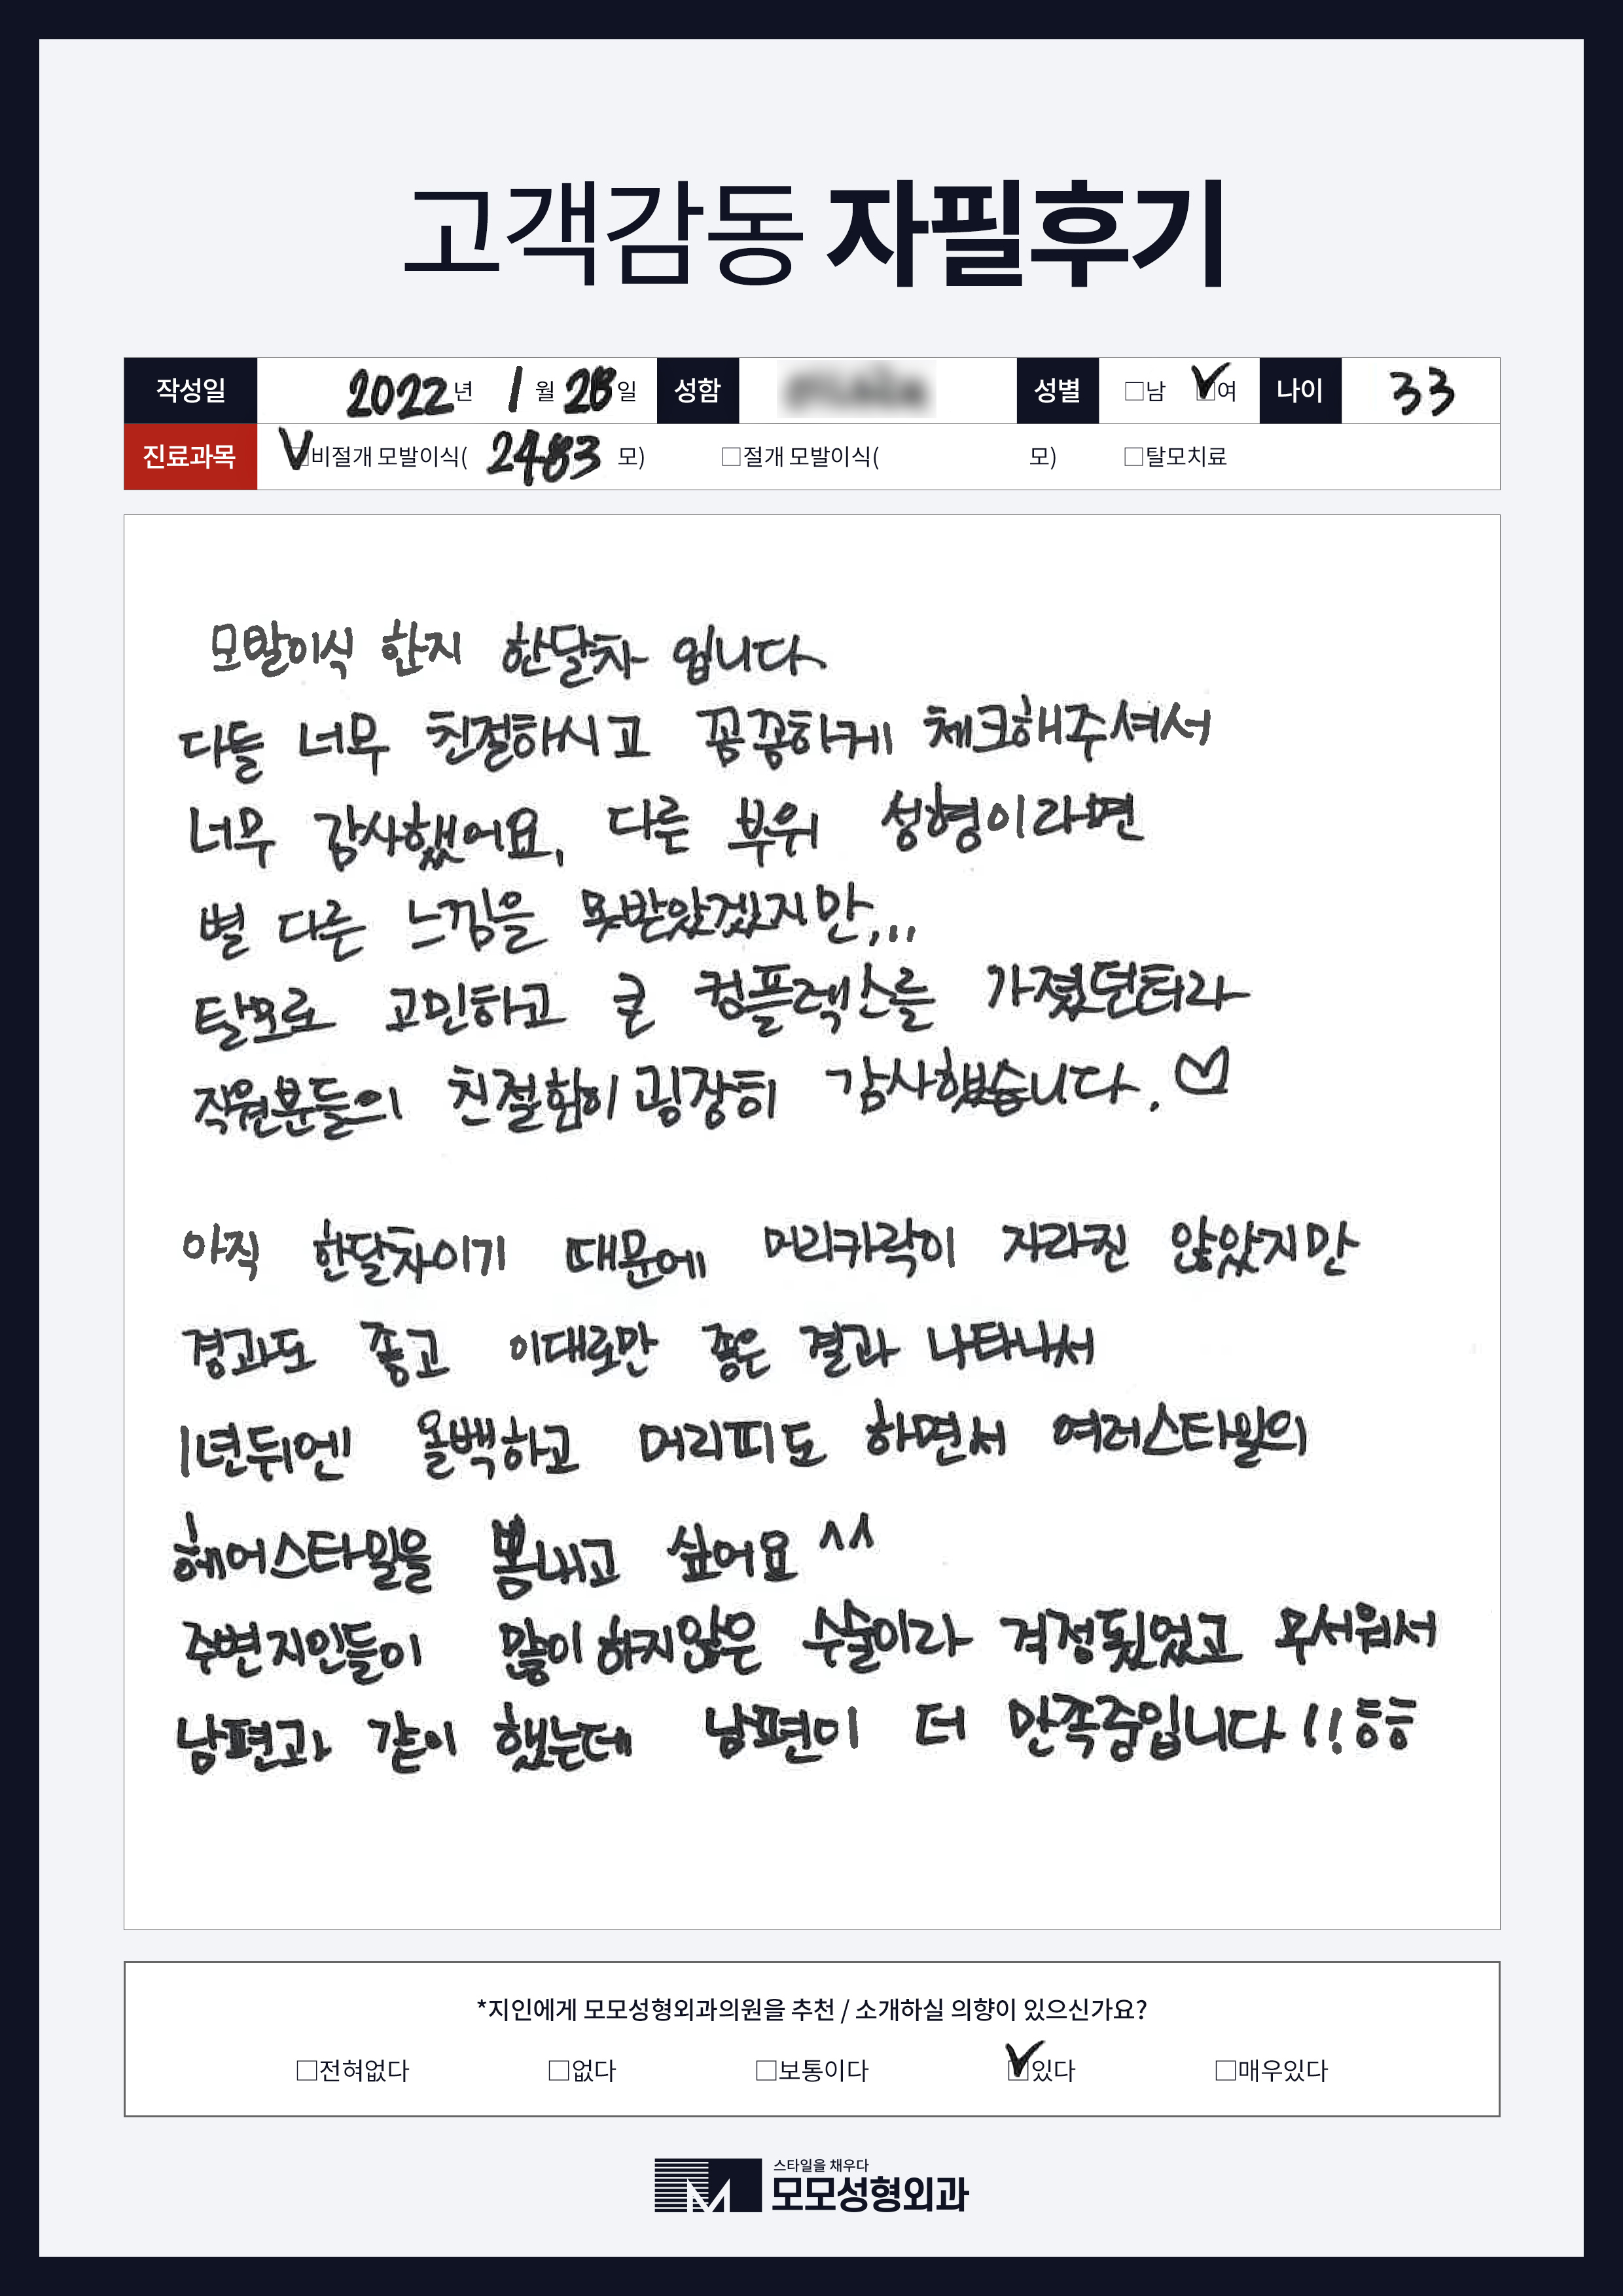 고객감동 자필후기
작성일 2022년 1월 28일 성함 성별 □남 ☑여 나이 33
진료과목 ☑비절개 모발이식( 2483 모) □절개 모발이식( 모) □탈모치료
모발이식 한지 한달차 입니다
다들 너무 친절하시고 꼼꼼하게 체크해주셔서
너무 감사했어요, 다른 부위 성형이라면
별 다른 느낌을 못받았겠지만,..
탈모로 고민하고 큰 컴플렉스를 가졌던터라
직원분들의 친절함이 굉장히 감사했습니다. ♡
아직 한달차이기 때문에 머리카락이 자라진 않았지만
경과도 좋고 이대로만 좋은 결과 나타나서
1년뒤엔 올백하고 머리띠도 하면서 여러스타일의
헤어스타일을 뽐내고 싶어요 ^^
주변지인들이 많이 하지않은 수술이라 걱정됬었고 무서워서
남편과 같이 했는데 남편이 더 만족중입니다!! ㅎㅎ
*지인에게 모모성형외과의원을 추천 / 소개하실 의향이 있으신가요?
□전혀없다 □없다 □보통이다 ☑있다 □매우있다
스타일을 채우다
모모성형외과